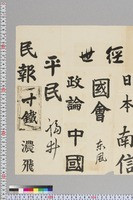 日本 南信
經世
國會 東風
政論 中國
平民 福井
民報 寸鐵 濃飛